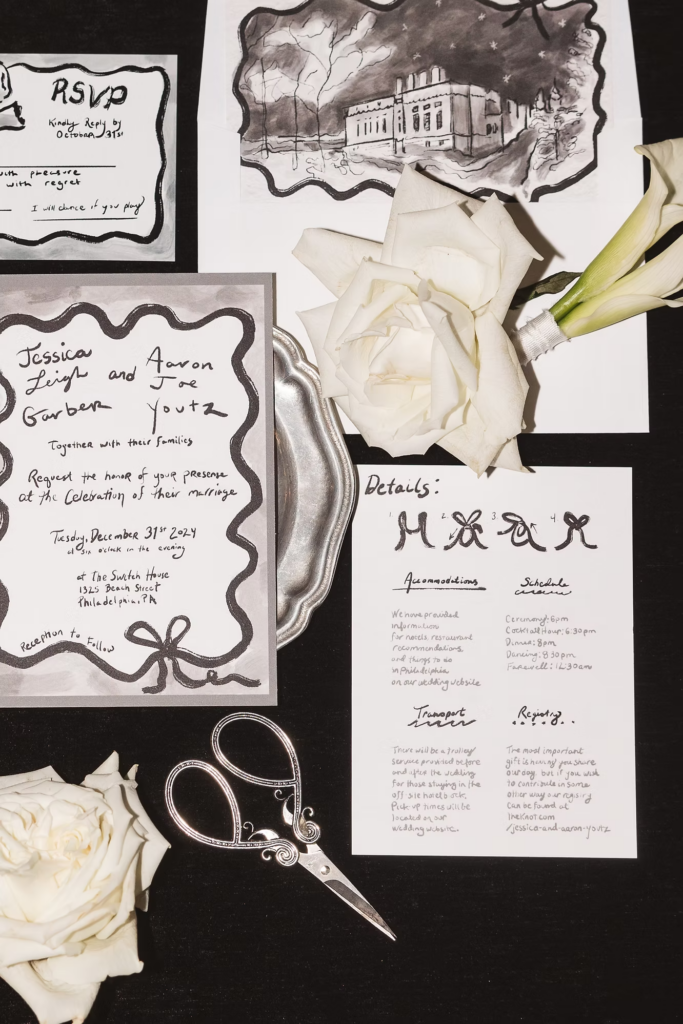 RSVP
Kindly Reply by
October 31st
with pleasure
with regret
I will dance if you play
Jessica Leigh Garber and Aaron Joe Youtz
Together with their families
Request the honor of your presense
at the Celebration of their marriage
Tuesday, December 31st 2024
at six o'clock in the evening
at The Switch House
1325 Beach Street
Philadelphia, PA
Reception to Follow
Details:
1 2 3 4
Accommodations
We have provided
information
for hotels, restaurant
recommendations
and things to do
in Philadelphia
on our wedding website
Schedule
Ceremony: 6pm
Cocktail Hour: 6:30pm
Dinner: 8pm
Dancing: 8:30pm
Farewell: 12:30am
Transport
There will be a trolley
service provided before
and after the wedding
for those staying in the
off site hotel block.
Pick up times will be
located on our
wedding website.
Registry
The most important
gift is having you share
our day, but if you wish
to contribute in some
other way our registry
can be found at
theknot.com
/jessica-and-aaron-youtz